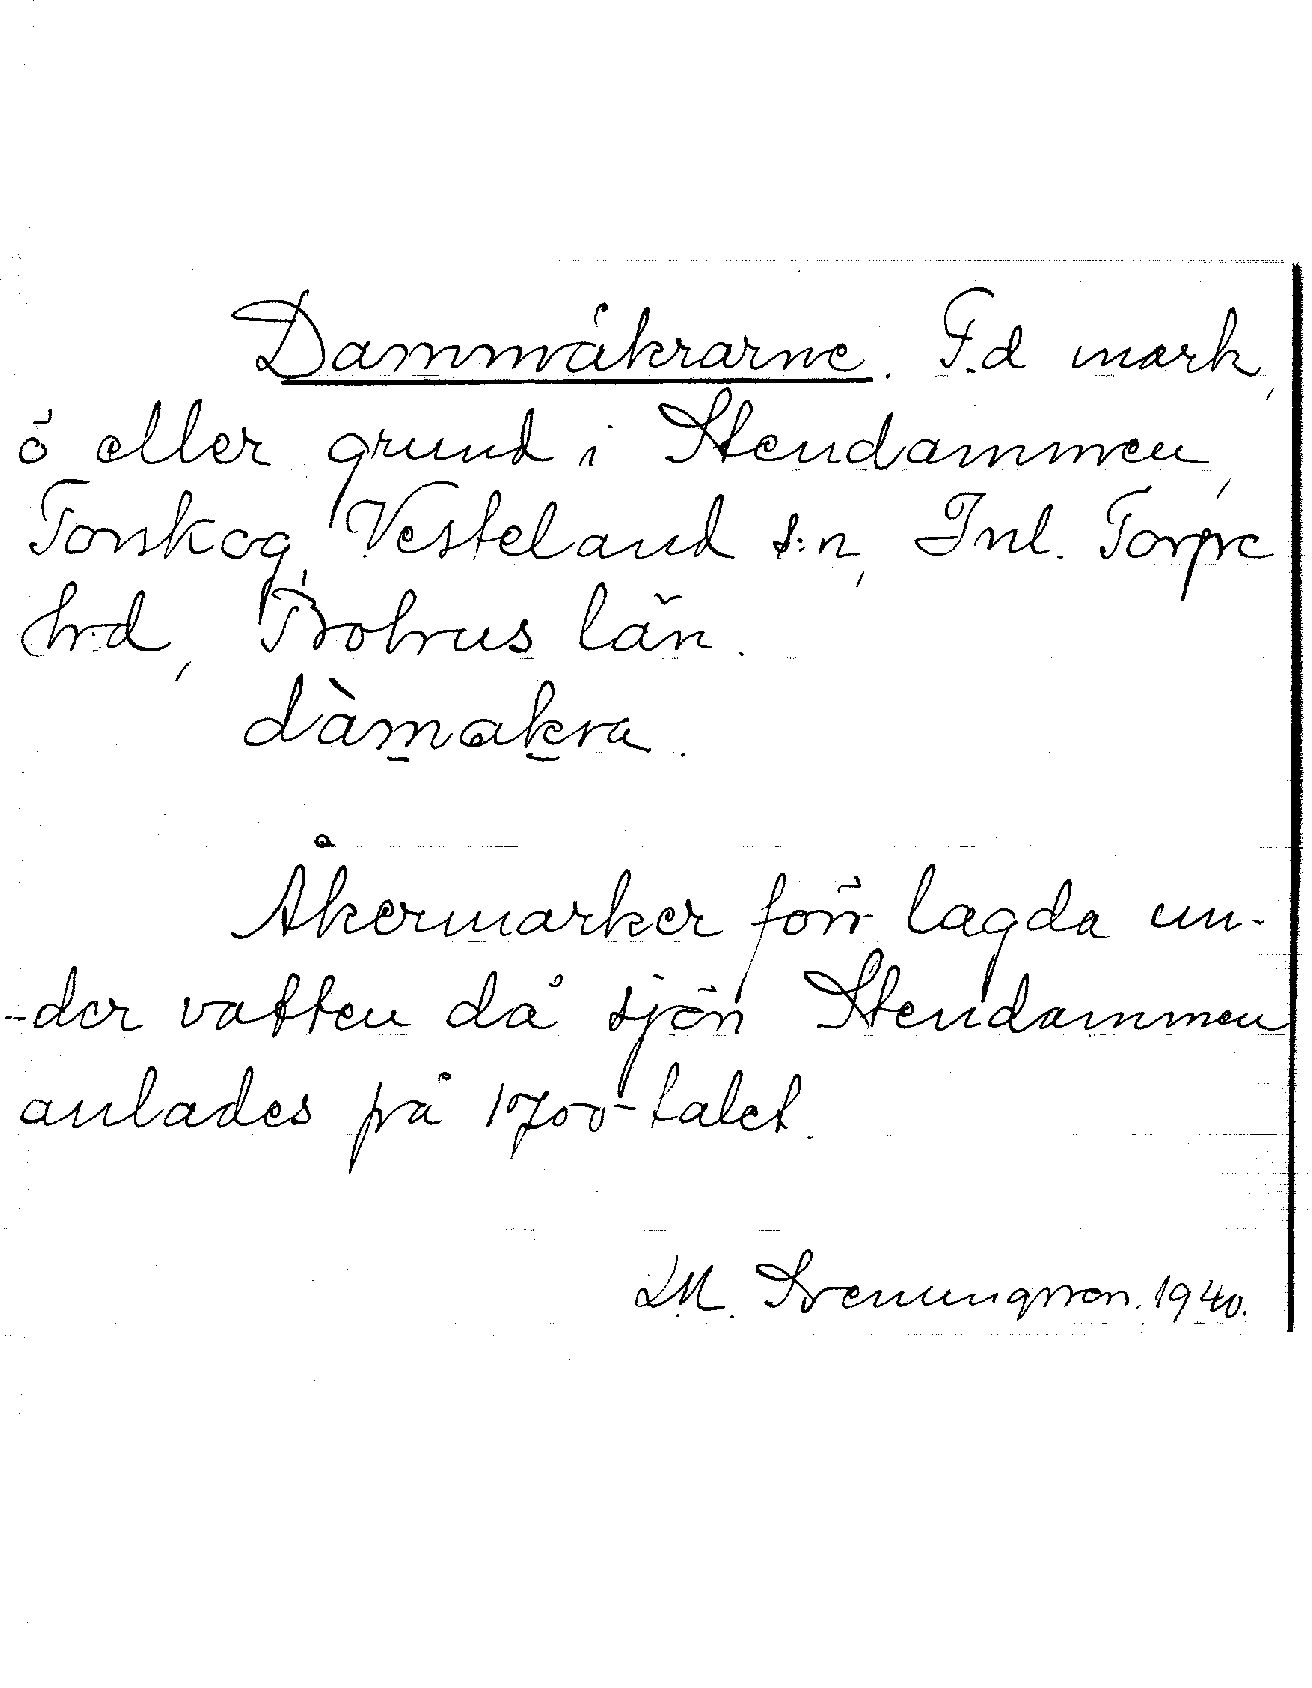 Dammåkrarne. F.d mark,
ö eller grund i Stendammen,
Torskog, Vesterland s:n, Inl. Torpe
hrd, Bohus län.
dàmakra.
Åkermarker förr lagda un-
-der vatten då sjön Stendammen
anlades på 1700-talet.
D.M. Svenungsson. 1940.